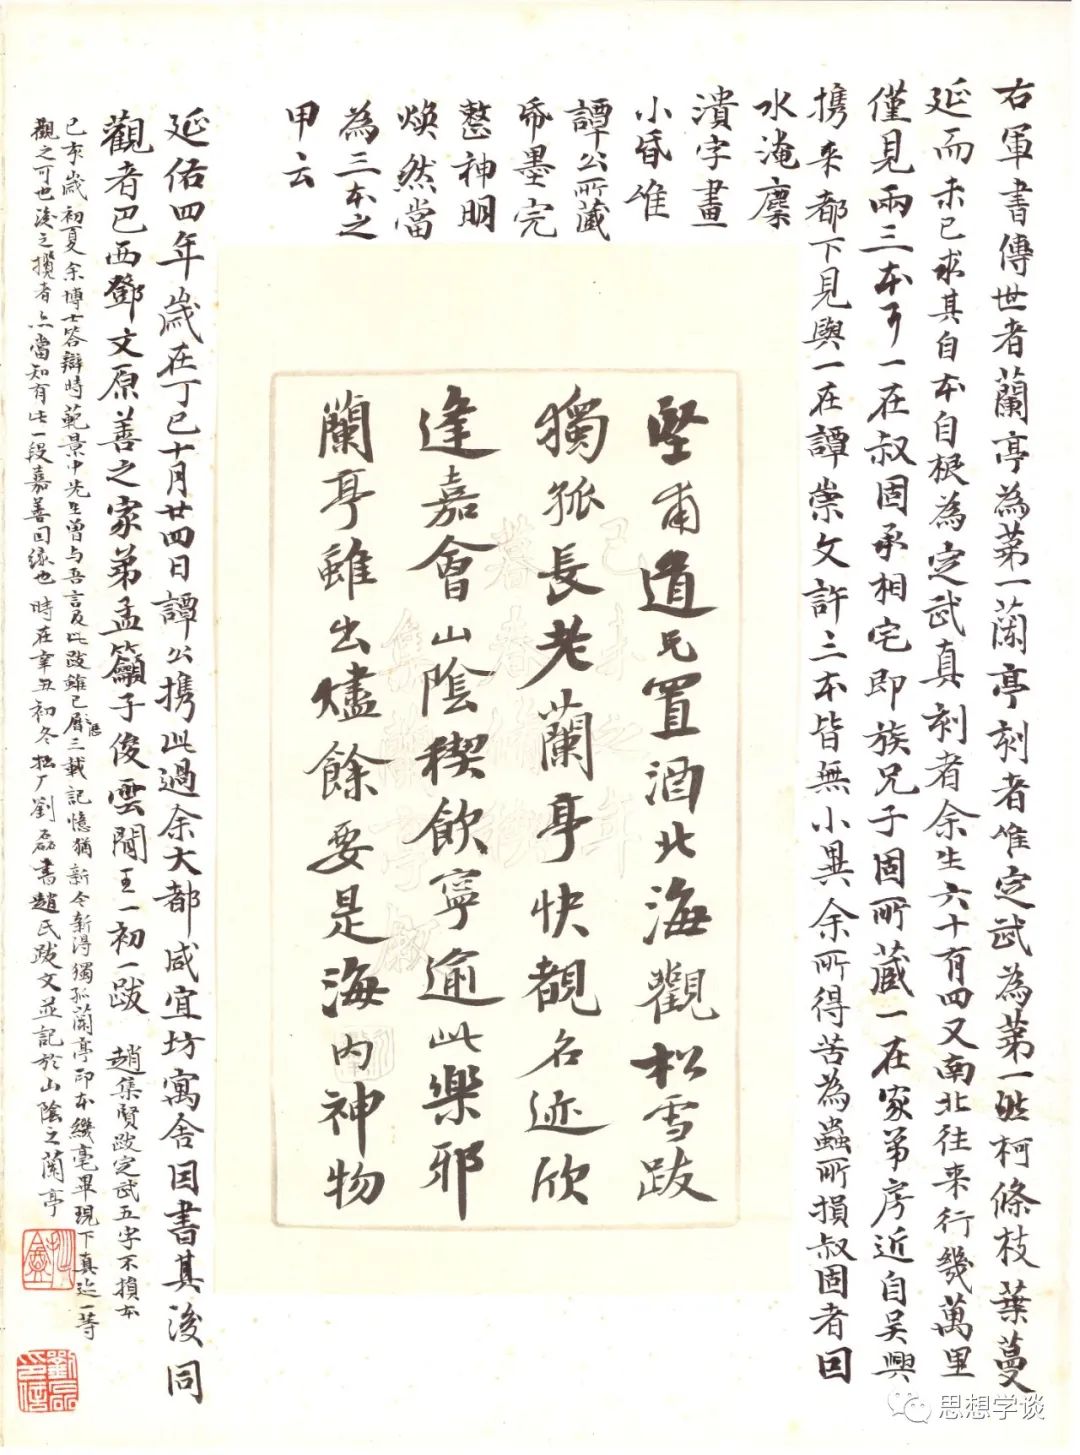 右軍書傳世者蘭亭為第一蘭亭刻者唯定武為第一然柯條枝葉蔓
延而未已求其自本自根為定武真刻者余生六十有四又南北往来行幾萬里
僅見兩三本耳一在叔固丞相宅即族兄子固所藏一在家弟房近自吴興
携来都下見與一在譚崇文許三本皆無小異余所得苦為蟲所損叔固者曰
水淹麋
潰字畫
小昏唯
譚公所藏
帋墨完
整神明
煥然當
為三本之
甲云
延佑四年歲在丁巳十月廿四日譚公携此過余大都咸宜坊寓舍因書其後同
觀者巴西鄧文原善之家弟孟籲子俊雲間王一初一跋
趙集賢跋定武五字不損本
己亥歲初夏余博士答辯時範景中先生曾与吾言及此跋雖已曆三載記憶猶新今新得獨孤蘭亭印本纔毫畢現下真迹一等
觀之可也後之攬者亦當知有此一段嘉善因緣也時在辛丑初冬松厂劉磊書趙氏跋文並記於山陰之蘭亭
堅甫道兄置酒北海觀松雪跋
獨孤長老蘭亭快覩名迹欣
逢嘉會山陰稧飲寧逾此樂邪
蘭亭雖出燼餘要是海内神物
己未之年
暮春脩稧
集蘭亭敘
思想学谈